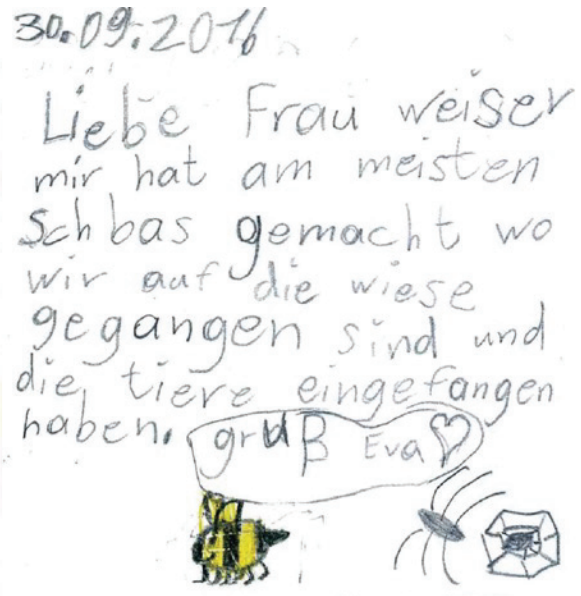 30.09.2016
Liebe Frau weiser
mir hat am meisten
Schbas gemacht wo
wir auf die wiese
gegangen sind und
die tiere eingefangen
haben.
gruß Eva♡